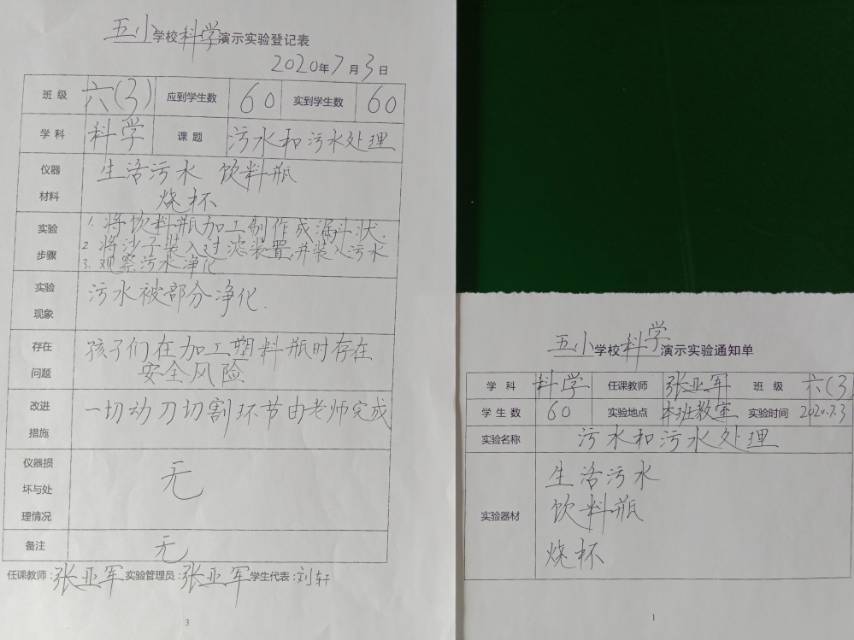 五小学校科学演示实验登记表
2020年7月3日
班 级 六(3) 应到学生数 60 实到学生数 60
学 科 科学 课 题 污水和污水处理
仪器材料 生活污水 饮料瓶
烧杯
实验步骤 1. 将饮料瓶加工制作成漏斗状.
2. 将沙子装入过滤装置,并装入污水
3. 观察污水净化
实验现象 污水被部分净化.
存在问题 孩子们在加工塑料瓶时存在
安全风险
改进措施 一切动刀切割环节由老师完成
仪器损坏与处理情况 无
备注 无
任课教师:张亚军 实验管理员:张亚军 学生代表:刘轩
3
五小学校科学演示实验通知单
学 科 科学 任课教师 张亚军 班 级 六(3)
学 生 数 60 实验地点 本班教室 实验时间 2020.7.3
实验名称 污水和污水处理
实验器材 生活污水
饮料瓶
烧杯
1